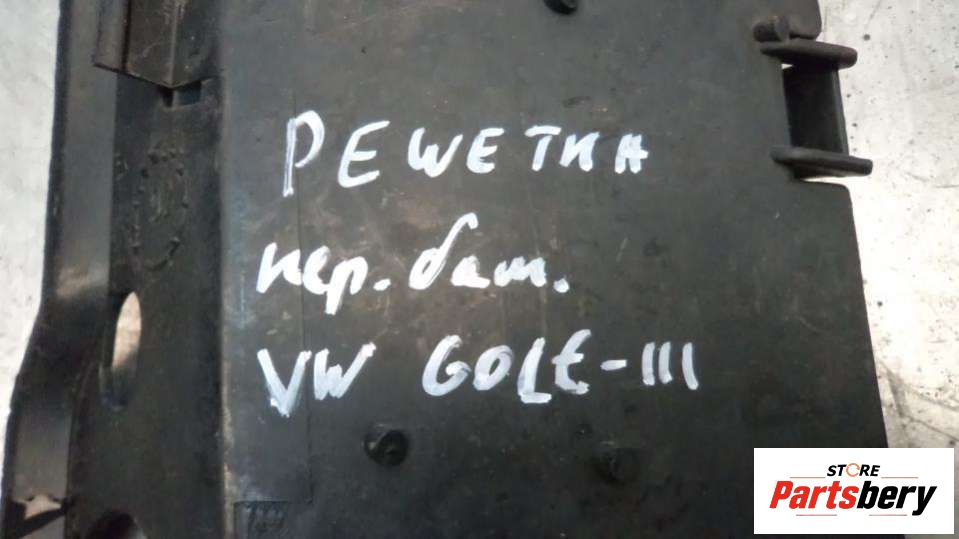 РЕШЕТКА
пер. бам.
VW GOLF-III
STORE
Partsbery